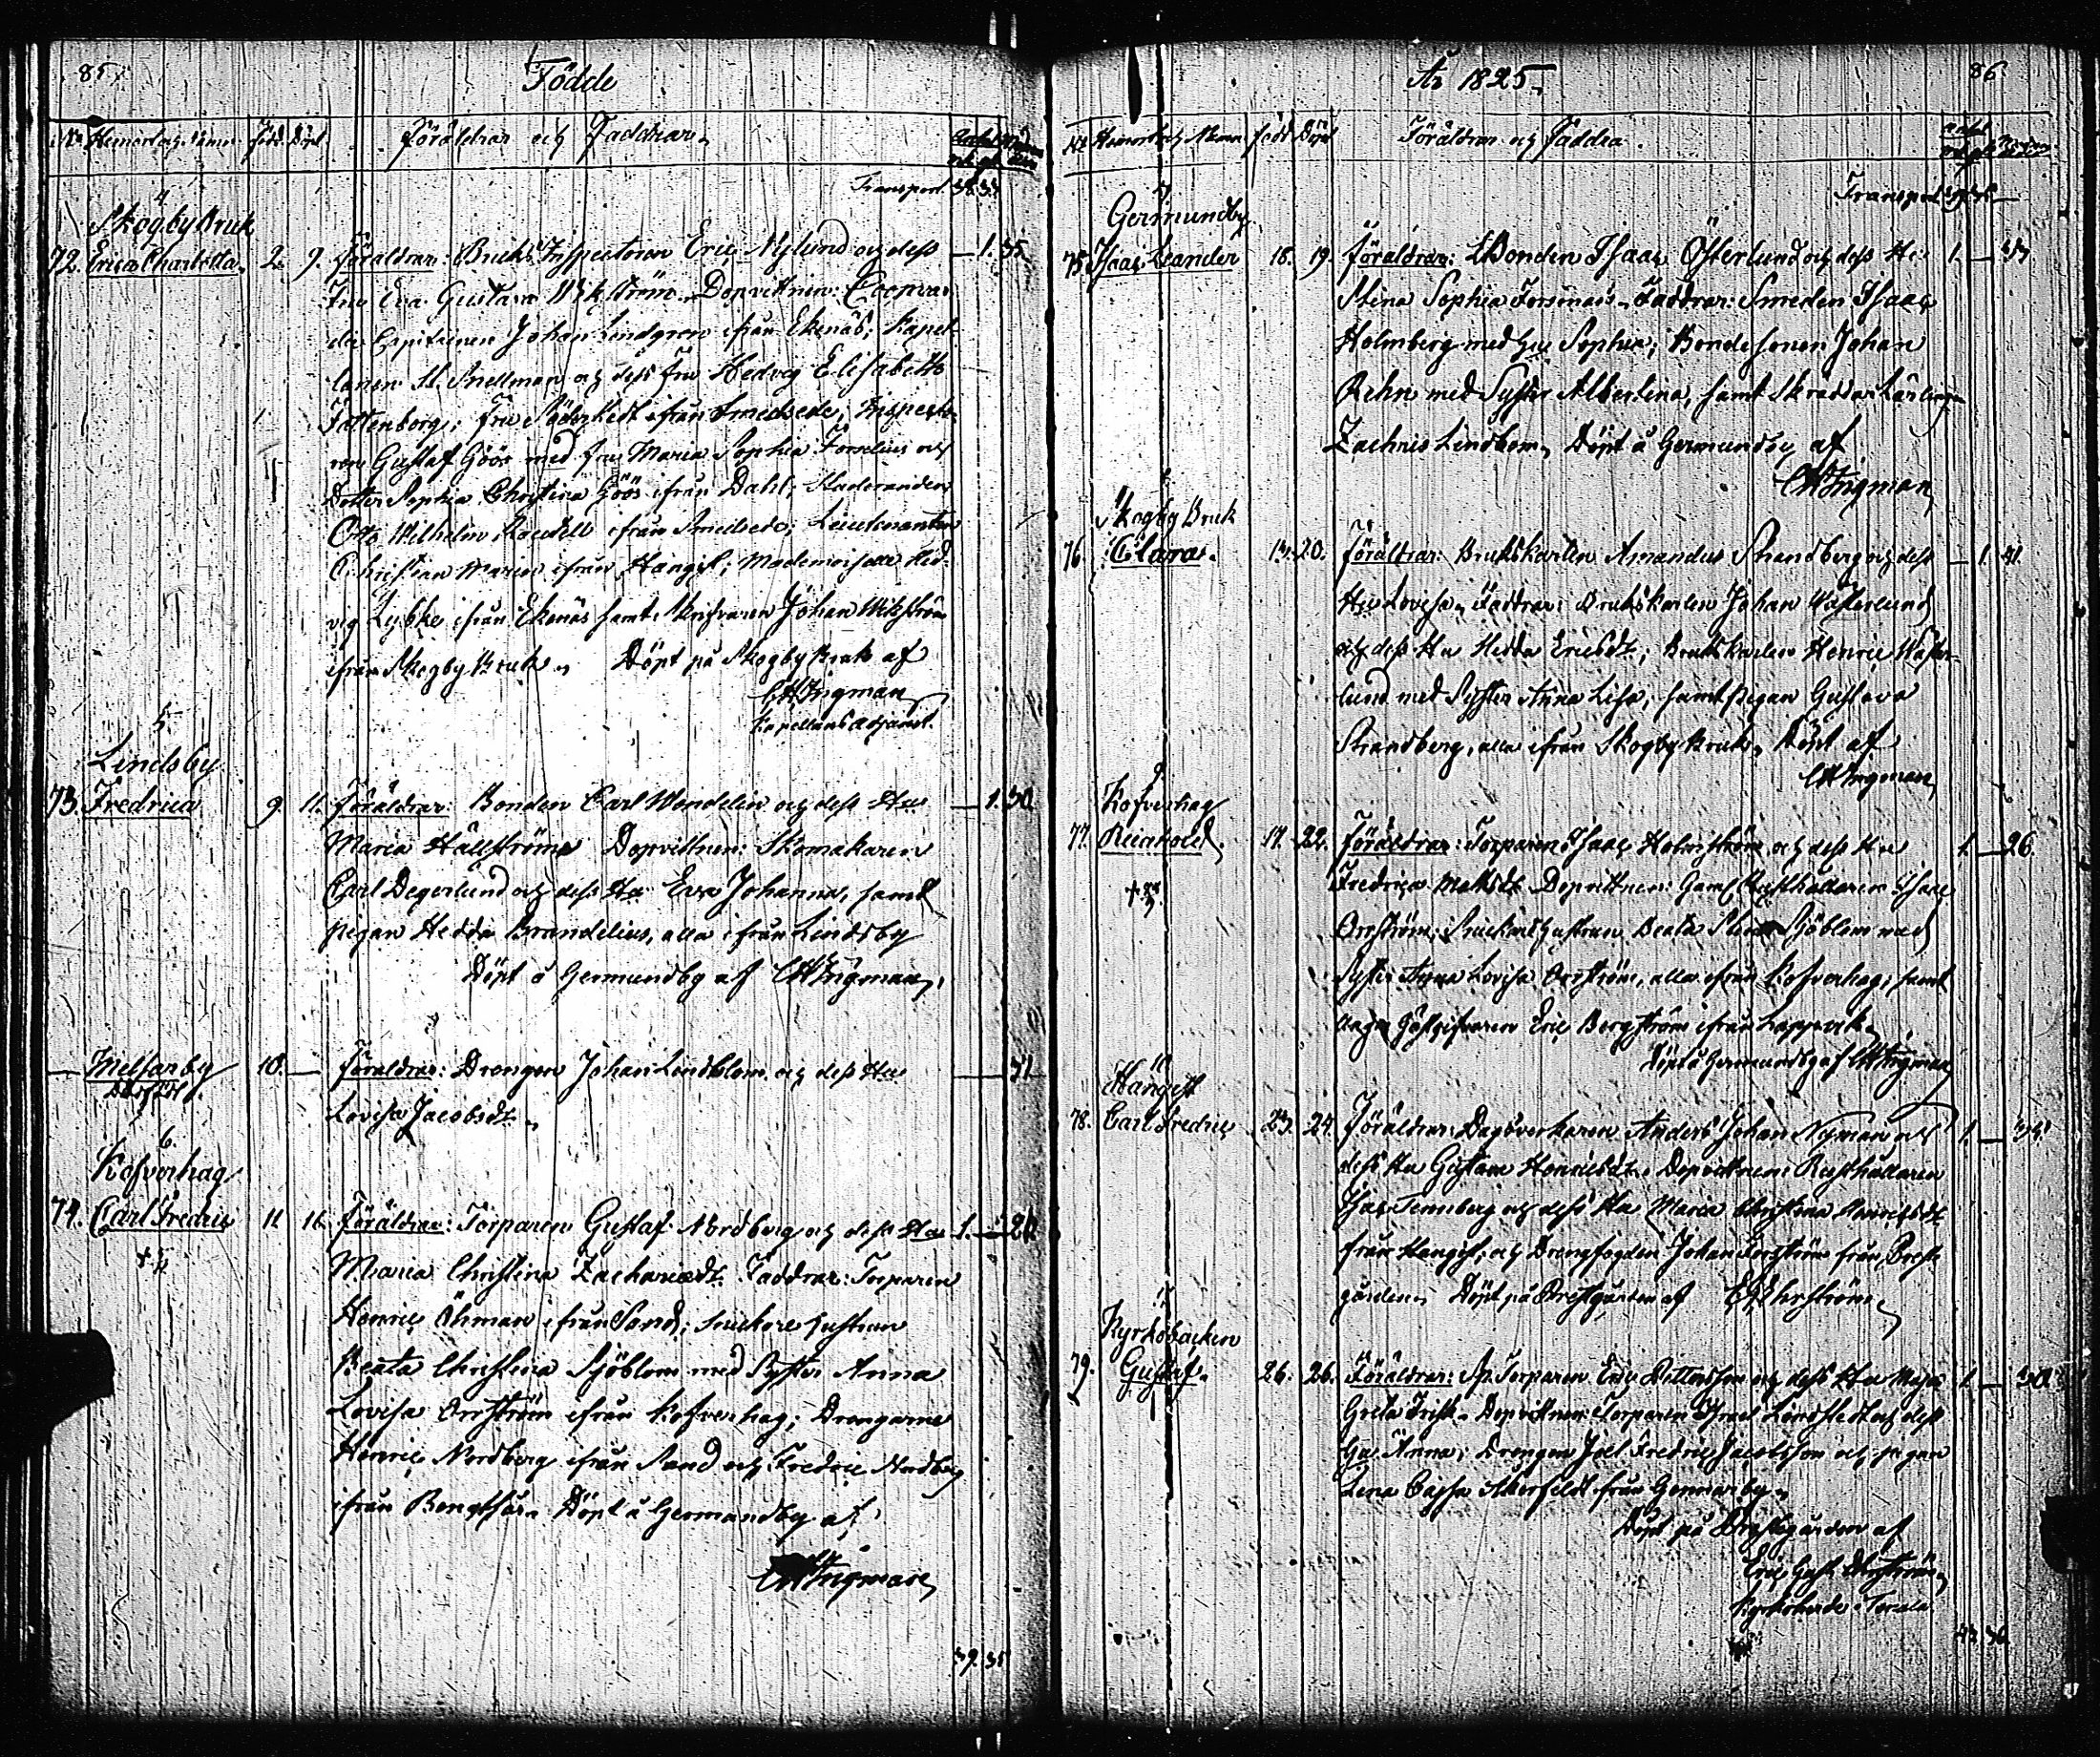 85
Födde
No Hemort och Namn Född Döpt Föräldrar och Faddrar
Transport 38.33
4
Skogby Bruk
72. Erica Charlotta 2. 9. Föräldrar: Bruks Inspectoren Eric Nylund och dess — 1. 35
Fru Eva Gustava Wikström. Dopvittnen: Coopvar
die Capitainen Johan Lindgren ifrån Ekenäs; Kapel
lanen Snellman och dess Fru Hedvig Elisabeth
Fattenborg; Fru ifrån Smedsede; Inspecto
ren Gustaf Göös med fru Maria Sophia Forselius och
Dotter Sophia Christina Göös ifrån Dahl; Studeranden
Otto Wilhelm ifrån Smedsede; Lieutenanten
Christian ifrån Hangist; Mademoiselle Hed
vig Lybke ifrån Ekenäs samt Skrifvaren Johan Wikström
ifrån Skogby Bruk. Döpt på Skogby Bruk af
CH Ingman
Kapellans adjunct.
5.
Lindsby
73. Fredrica 9 11. Föräldrar: Bonden Carl Wendelin och dess Hu — 1. 30
Maria Hällström Dopvittnen: Skomakaren
Carl Degerlund och dess Hu Eva Johanna, samt
pigan Hedda Brandelius, alla ifrån Lindsby
Döpt å Germundby af CH Ingman
— Melsarby 10. — Föräldrar: Drengen Johan Lindblom och dess Hu — 31
Dödföd.
Lovisa Jacobsdt.
6.
Kofverhag
74. Carl Fredric 11 16 Föräldrar: Torparen Gustaf Nordberg och dess Hu 1. — 26
Maria Christina Zachariædt. Faddrar: Torparen
Henric Öhman ifrån Sand; snickare hustrun
Beata Christina Sjöblom med Syster Anna
Lovisa Orrström ifrån Kofverhag; Drengarne
Henric Nordberg ifrån Sand och Fredric Nordberg
ifrån Bengtsår. Döpt å Germundby af
CH Ingman
39. 35
År 1825.
86
No Hemort och Namn född Döpt Föräldrar och Faddra
Transport 39.35
7
Germundby
75 Isaac Leander 18. 19. föräldrar: Bonden Isaac Österlund och dess Hu 1. — 37
Stina Sophia Forsman. Faddrar: Smeden Isaac
Holmberg med hu Sophia; Bondesonen Johan
Rehn med Syster Albertina, samt Skräddar Lärlingen
Zachris Lindbom. Döpt å Germundby af
CH Ingman
8
Skogby Bruk
76. Clara. 13. 20. föräldrar: Brukskarlen Amandus Strandberg och dess — 1. 41.
Hu Lovisa. Faddrar: Brukskarlen Johan Wästerlund
och dess Hu Hedda Ericsdt; Brukskarlen Henric Wäster
lund med Syster Anna Lisa, samt pigan Gustava
Strandberg, alla ifrån Skogby Bruk. Döpt af
CH Ingman
9.
Kofverhag
77. Reinhold. 17. 22. föräldrar: Torparen Isaac Holmström och dess Hu 1. — 26.
Fredrica Matsdt. Dopvittnen: Gaml Rusthållaren Isaac
Orrström; Snickare hustrun Beata Stina Sjöblom med
Syster Anna Lovisa Orrström, alla ifrån Kofverhag; samt
unga Gästgifvaren Eric Bergström ifrån Lappvik.
Döpt å Germundby af CH Ingman
10
Hangist
78. Carl Fredric 23. 24. föräldrar: Dagsverkaren Anders Johan Nyman och 1. — 34.
dess Hu Gustava Henricsdt. Dopvittnen: Rusthållaren
Isac Tennberg och dess Hu Maria Christina Henricsdt
från Hangist; och Drengfogden Johan Forsström från Prest
gården. Döpt på Prestgården af EG Ehrström
11
Kyrkobacken
79. Gustaf. 26. 26. Föräldrar: Torparen Eric Pettersson och dess Hu Maja 1. — 30.
Greta Frisk. Dopvittnen: Torparen Israel Lindstedt och dess
Hu Anna; Drengen Joel Fredric Jacobsson och pigan
Lena Cajsa Åkerfeldt från Gennarby.
Döpt på Prestgården af
Eric Gust Ehrström
Kyrkoherde i Tenala
43. 36